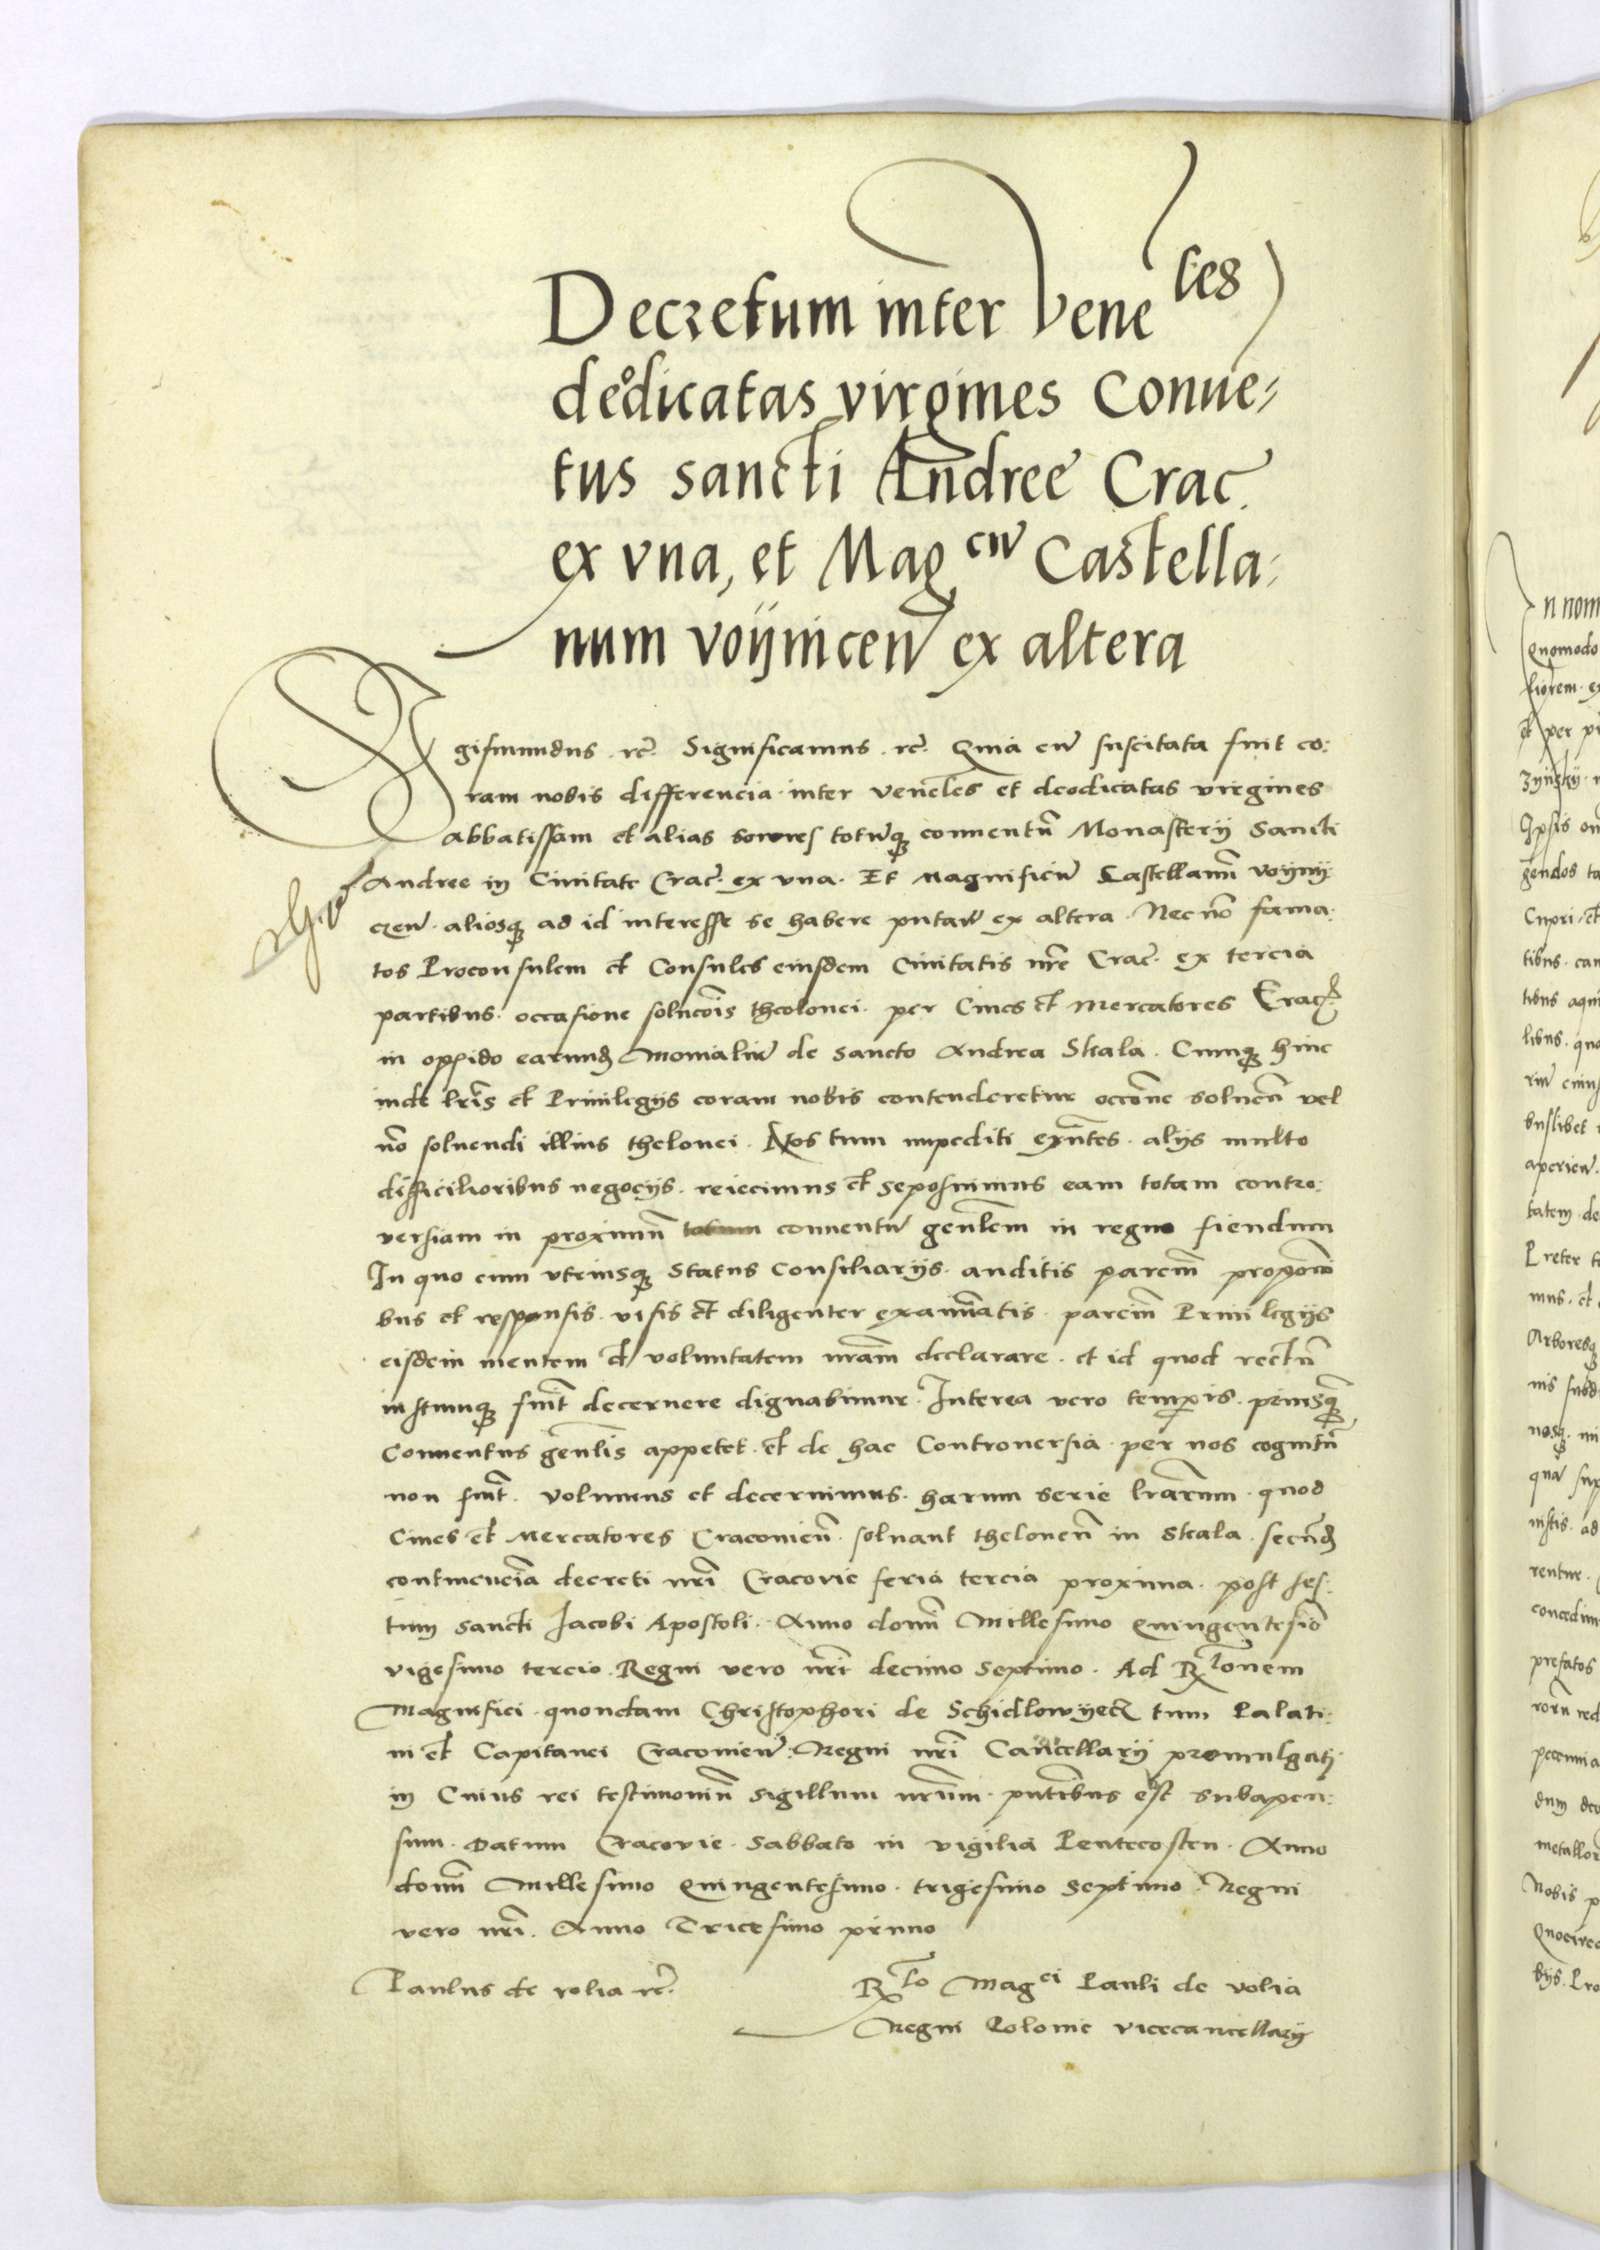 Decretum inter Vene les
deodicatas virgines Conue-
tus sancti Andree Crac.
ex vna, et Mag cū Castella-
num voÿnicen ex altera
Sigismundus rc̄. Significamus rc̄. Quia cū suscitata fuit co:
ram nobis differencia inter venēles et deodicatas virgines
Abbatissam et alias sorores totūq̨ conuentū Monasterÿ Sancti
Andree in Ciuitate Crac̄. ex vna. Et Magnificū Castellanū voÿnÿ
czen̄. aliosq̨ ad id interesse se habere putan̄ ex altera. Nec nō fama:
tos Proconsulem et Consules eiusdem Ciuitatis nr̄e Crac̄. ex tercia
partibus. occasione soluc̄ois theolonei. per Ciues et Mercatores Crac̄.
in oppido earund̄ Monialiū de Sancto Andrea Skala. Cumq̨ hinc
inde lr̄is et Priuilegÿs coram nobis contenderetur occ̄one soluen̄ vel
nō soluendi illius thelonei. Nos tum impediti exn̄tes. alÿs multo
difficilioribus negocÿs. reiecimus et seposuimus eam totam contro:
versiam in proximū conuentū gen̄lem in regno fiendum
In quo cum vtriusq̨ Status Consiliarÿs. auditis parciū propōni
bus et responsis. visis et diligenter examīatis. parciū Priuilegÿs
eisdem mentem et voluntatem nr̄am declarare. et id quod rectū
iustumq̨ fuīt decernere dignabimur. Interea vero temporis. priusq̄
Conuentus gen̄lis appetet. et de hac Controuersia per nos cognitū
non fuīt. volumus et decernimus. harum serie lr̄arum. quod
Ciues et Mercatores Cracouien̄. soluant theloneū in Skala. secund̄
continenciā decreti nr̄i Cracovie feria tercia proxima. post fes:
tum Sancti Jacobi Apostoli. Anno domī Millesimo Quingentesiō
vigesimo tercio. Regni vero nr̄i decimo Septimo. Ad Rl̄onem
Magnifici quondam Christophori de Schidlowÿecz tum Palati:
ni et Capitanei Cracouien̄. Regni nr̄i Cancellarÿ promulgati
in Cuius rei testimoniū Sigillum nr̄um. pn̄tibus est Subapen:
sum. Datum Cracovie. Sabbato in vigilia Pentecosten. Anno
domī Millesimo Quingentesimo. trigesimo Septimo. Regni
vero nr̄i. Anno Tricesimo primo
Paulus de volia rc̄.
Rlo Magci Pauli de volia
Regni Polonie vicecancellarÿ